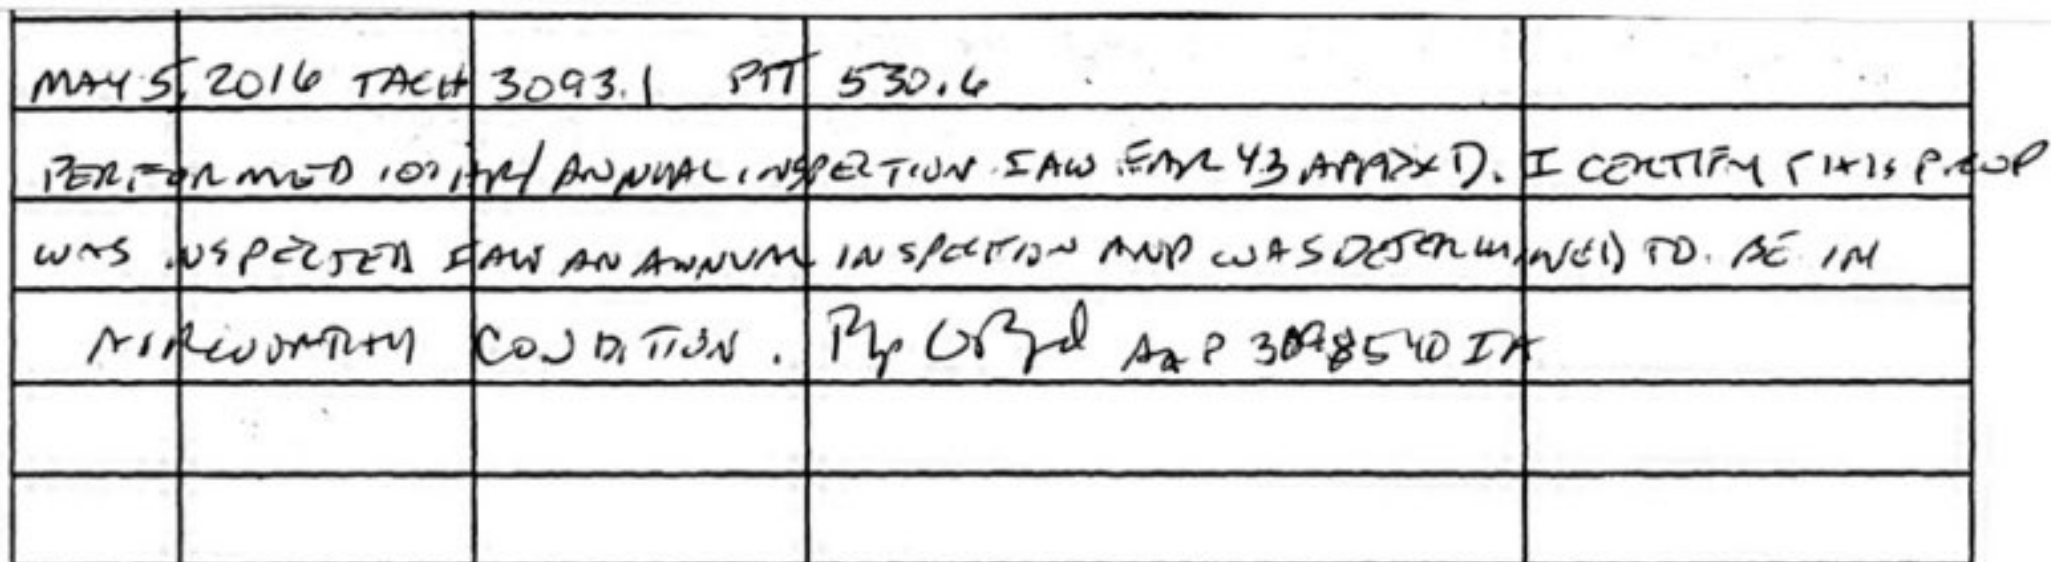 MAY 5, 2016 TACH 3093.1 PTT 530.6
PERFORMED 100 HR/ANNUAL INSPECTION IAW FAR 43 APPDX D. I CERTIFY THIS PROP
WAS INSPECTED IAW AN ANNUAL INSPECTION AND WAS DETERMINED TO BE IN
AIRWORTHY CONDITION. A&P 3098540 IA